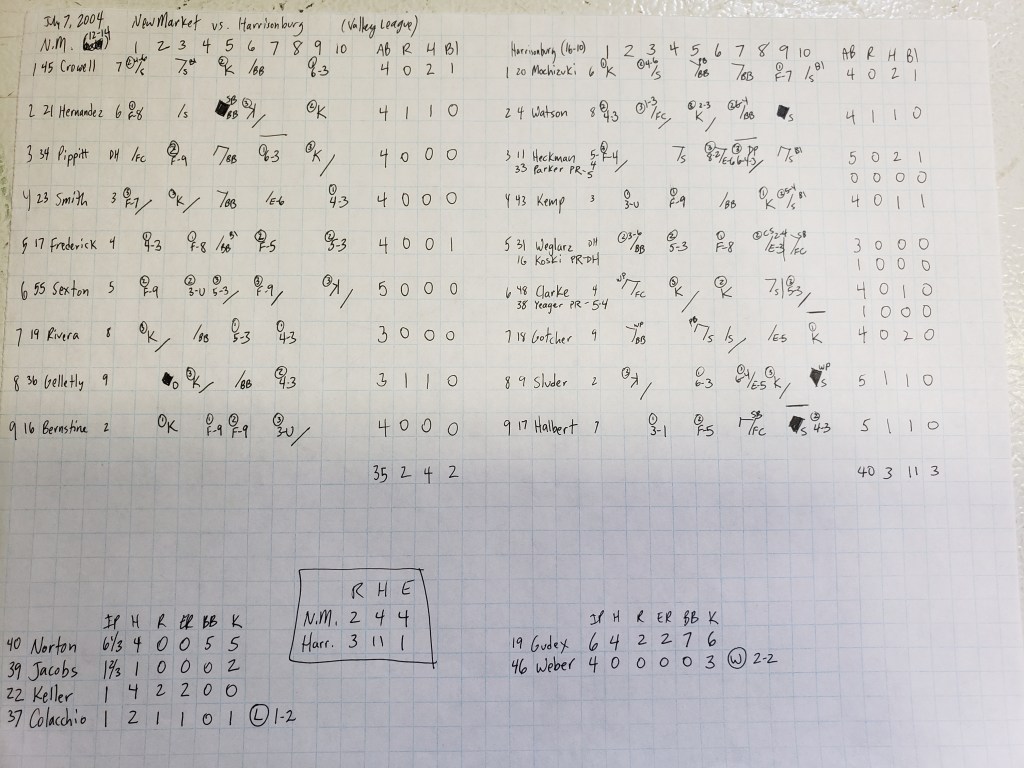 July 7, 2004 New Market vs. Harrisonburg (Valley League)
N.M. (12-14) 1 2 3 4 5 6 7 8 9 10 AB R H BI
1 45 Crowell 7 S K /BB 6-3 4 0 2 1
2 21 Hernandez 6 F-8 /S SB BB K 4 1 1 0
3 34 Pippitt DH /FC F-9 BB 6-3 K 4 0 0 0
4 23 Smith 3 F-7 K BB /E-6 4-3 4 0 0 0
5 17 Frederick 4 4-3 F-8 /BB BI F-5 5-3 4 0 0 1
6 55 Sexton 5 F-9 3-U 5-3 F-9 K 5 0 0 0
7 19 Rivera 8 K /BB 5-3 4-3 3 0 0 0
8 36 Gelletly 9 D K /BB 4-3 3 1 1 0
9 16 Bernstine 2 K F-9 F-9 3-U 4 0 0 0
35 2 4 2
Harrisonburg (16-10) 1 2 3 4 5 6 7 8 9 10 AB R H BI
1 20 Mochizuki 6 K 4-6 /S PB /BB BB F-7 /S BI 4 0 2 1
2 4 Watson 8 4-3 1-3 /FC 2-3 K /BB S 4 1 1 0
3 11 Heckman 5-4 F-4 S 8-2 /E-6 DP 6-4-3 S BI 5 0 2 1
33 Parker PR-5 0 0 0 0
4 43 Kemp 3 3-U F-9 /BB K /S BI 4 0 1 1
5 31 Weglarz DH 3-6 /BB 5-3 F-8 CS 2-4 /E-3 SB /FC 3 0 0 0
16 Koski PR-DH 1 0 0 0
6 48 Clarke 4 WP FC K K S 5-3 4 0 1 0
38 Yeager PR-5-4 1 0 0 0
7 18 Gotcher 9 WP BB PB S /S /E5 K 4 0 2 0
8 9 Sluder 2 K 6-3 6-4 /E-5 K WP S 5 1 1 0
9 17 Halbert 7 3-1 F-5 SB FC S 4-3 5 1 1 0
40 3 11 3
R H E
N.M. 2 4 4
Harr. 3 11 1
IP H R ER BB K
40 Norton 6⅓ 4 0 0 5 5
39 Jacobs 1⅔ 1 0 0 0 2
22 Keller 1 4 2 2 0 0
37 Colacchio 1 2 1 1 0 1 L 1-2
IP H R ER BB K
19 Gudex 6 4 2 2 7 6
46 Weber 4 0 0 0 0 3 W 2-2